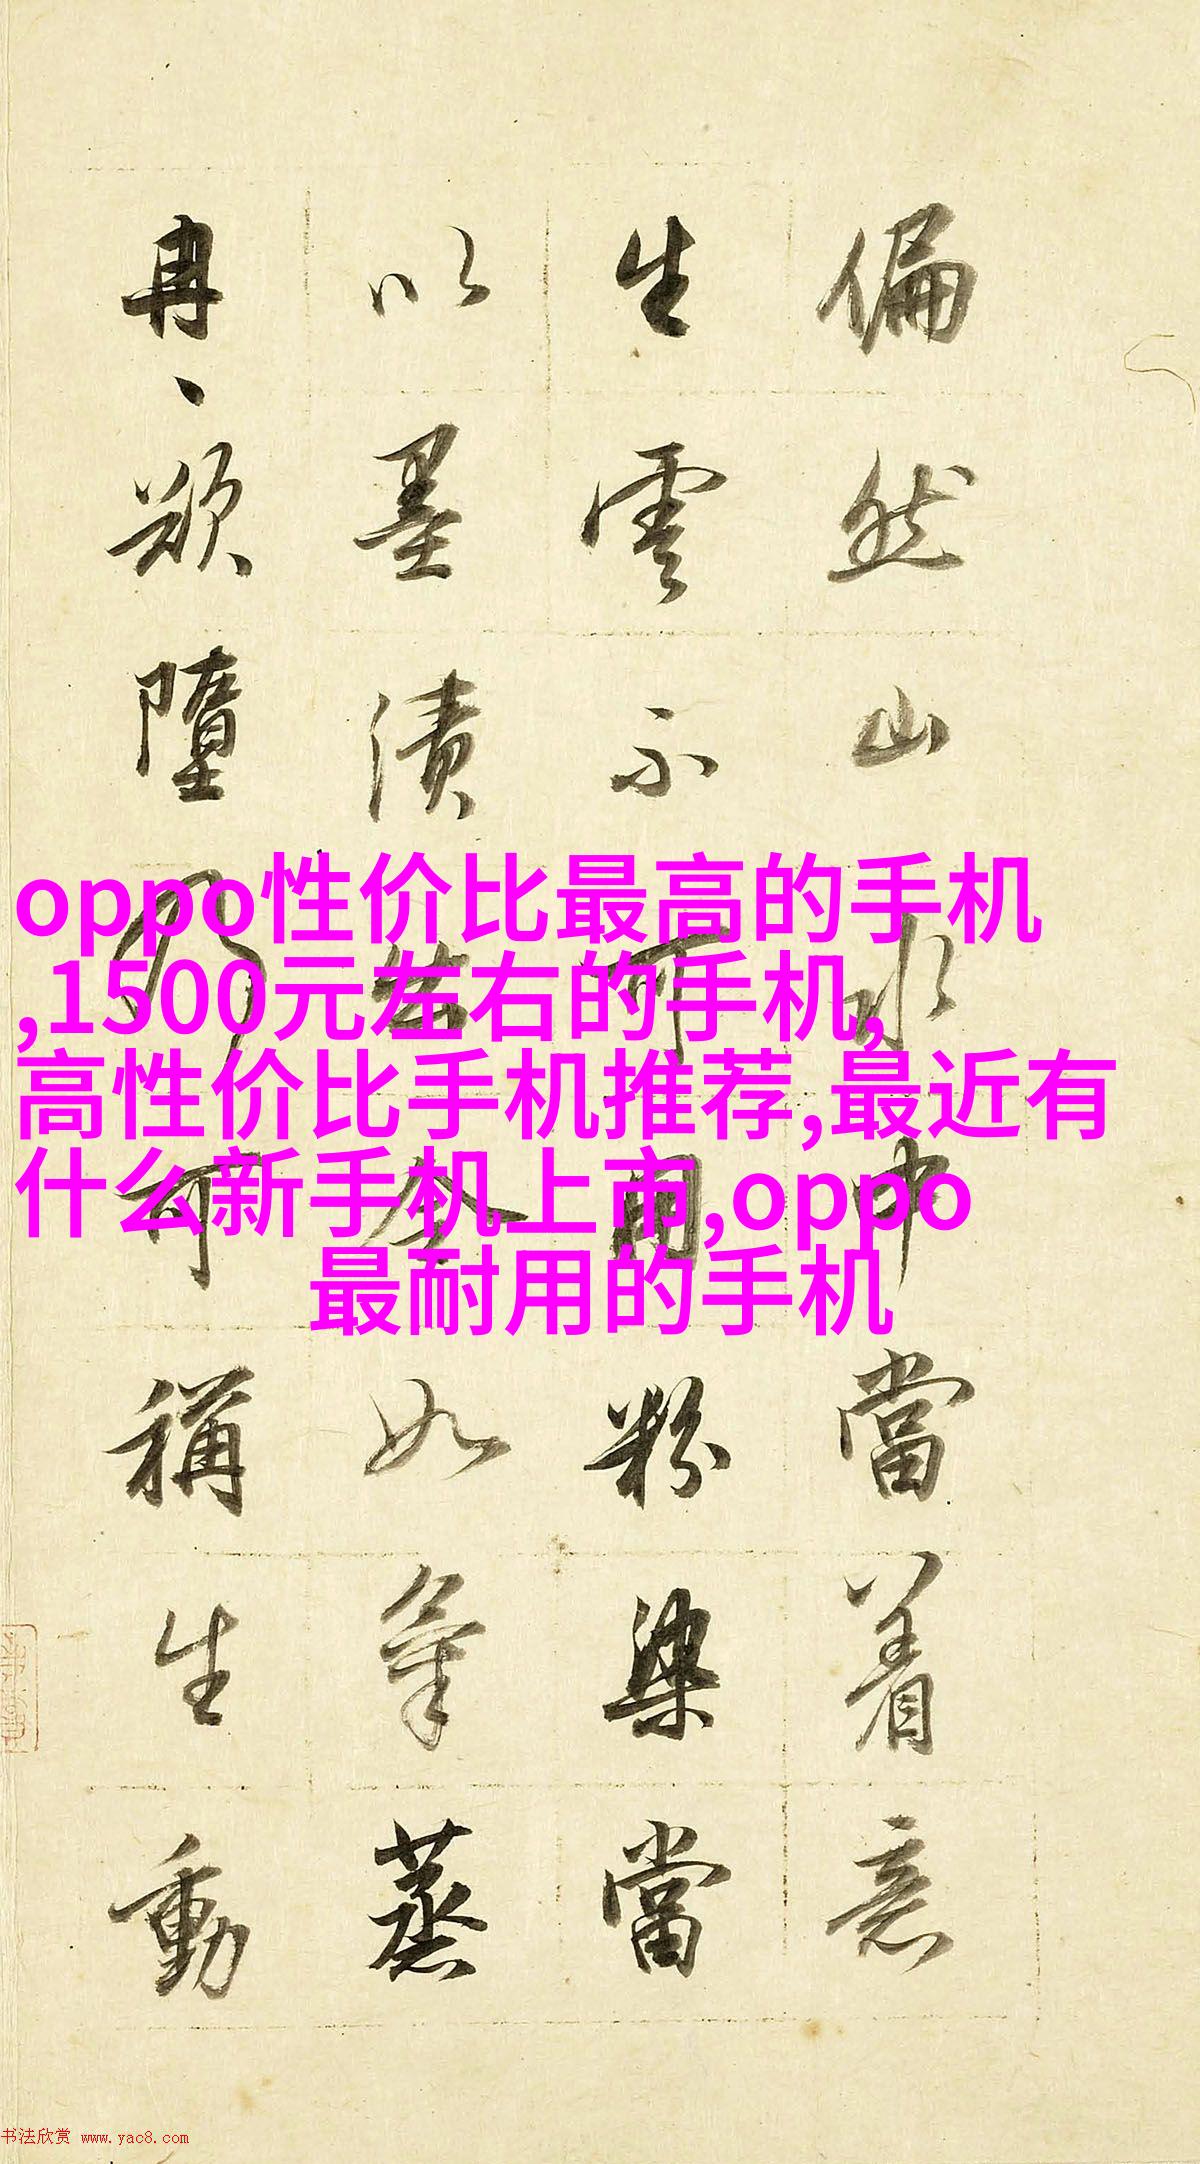 oppo性价比最高的手机
,1500元左右的手机,
高性价比手机推荐,最近有
什么新手机上市,oppo
最耐用的手机
偏然山水中當着意
生雲不可用粉染當
以墨漬出令如氣蒸
冉、欲墮乃可稱生動
书法欣赏 www.yac8.com